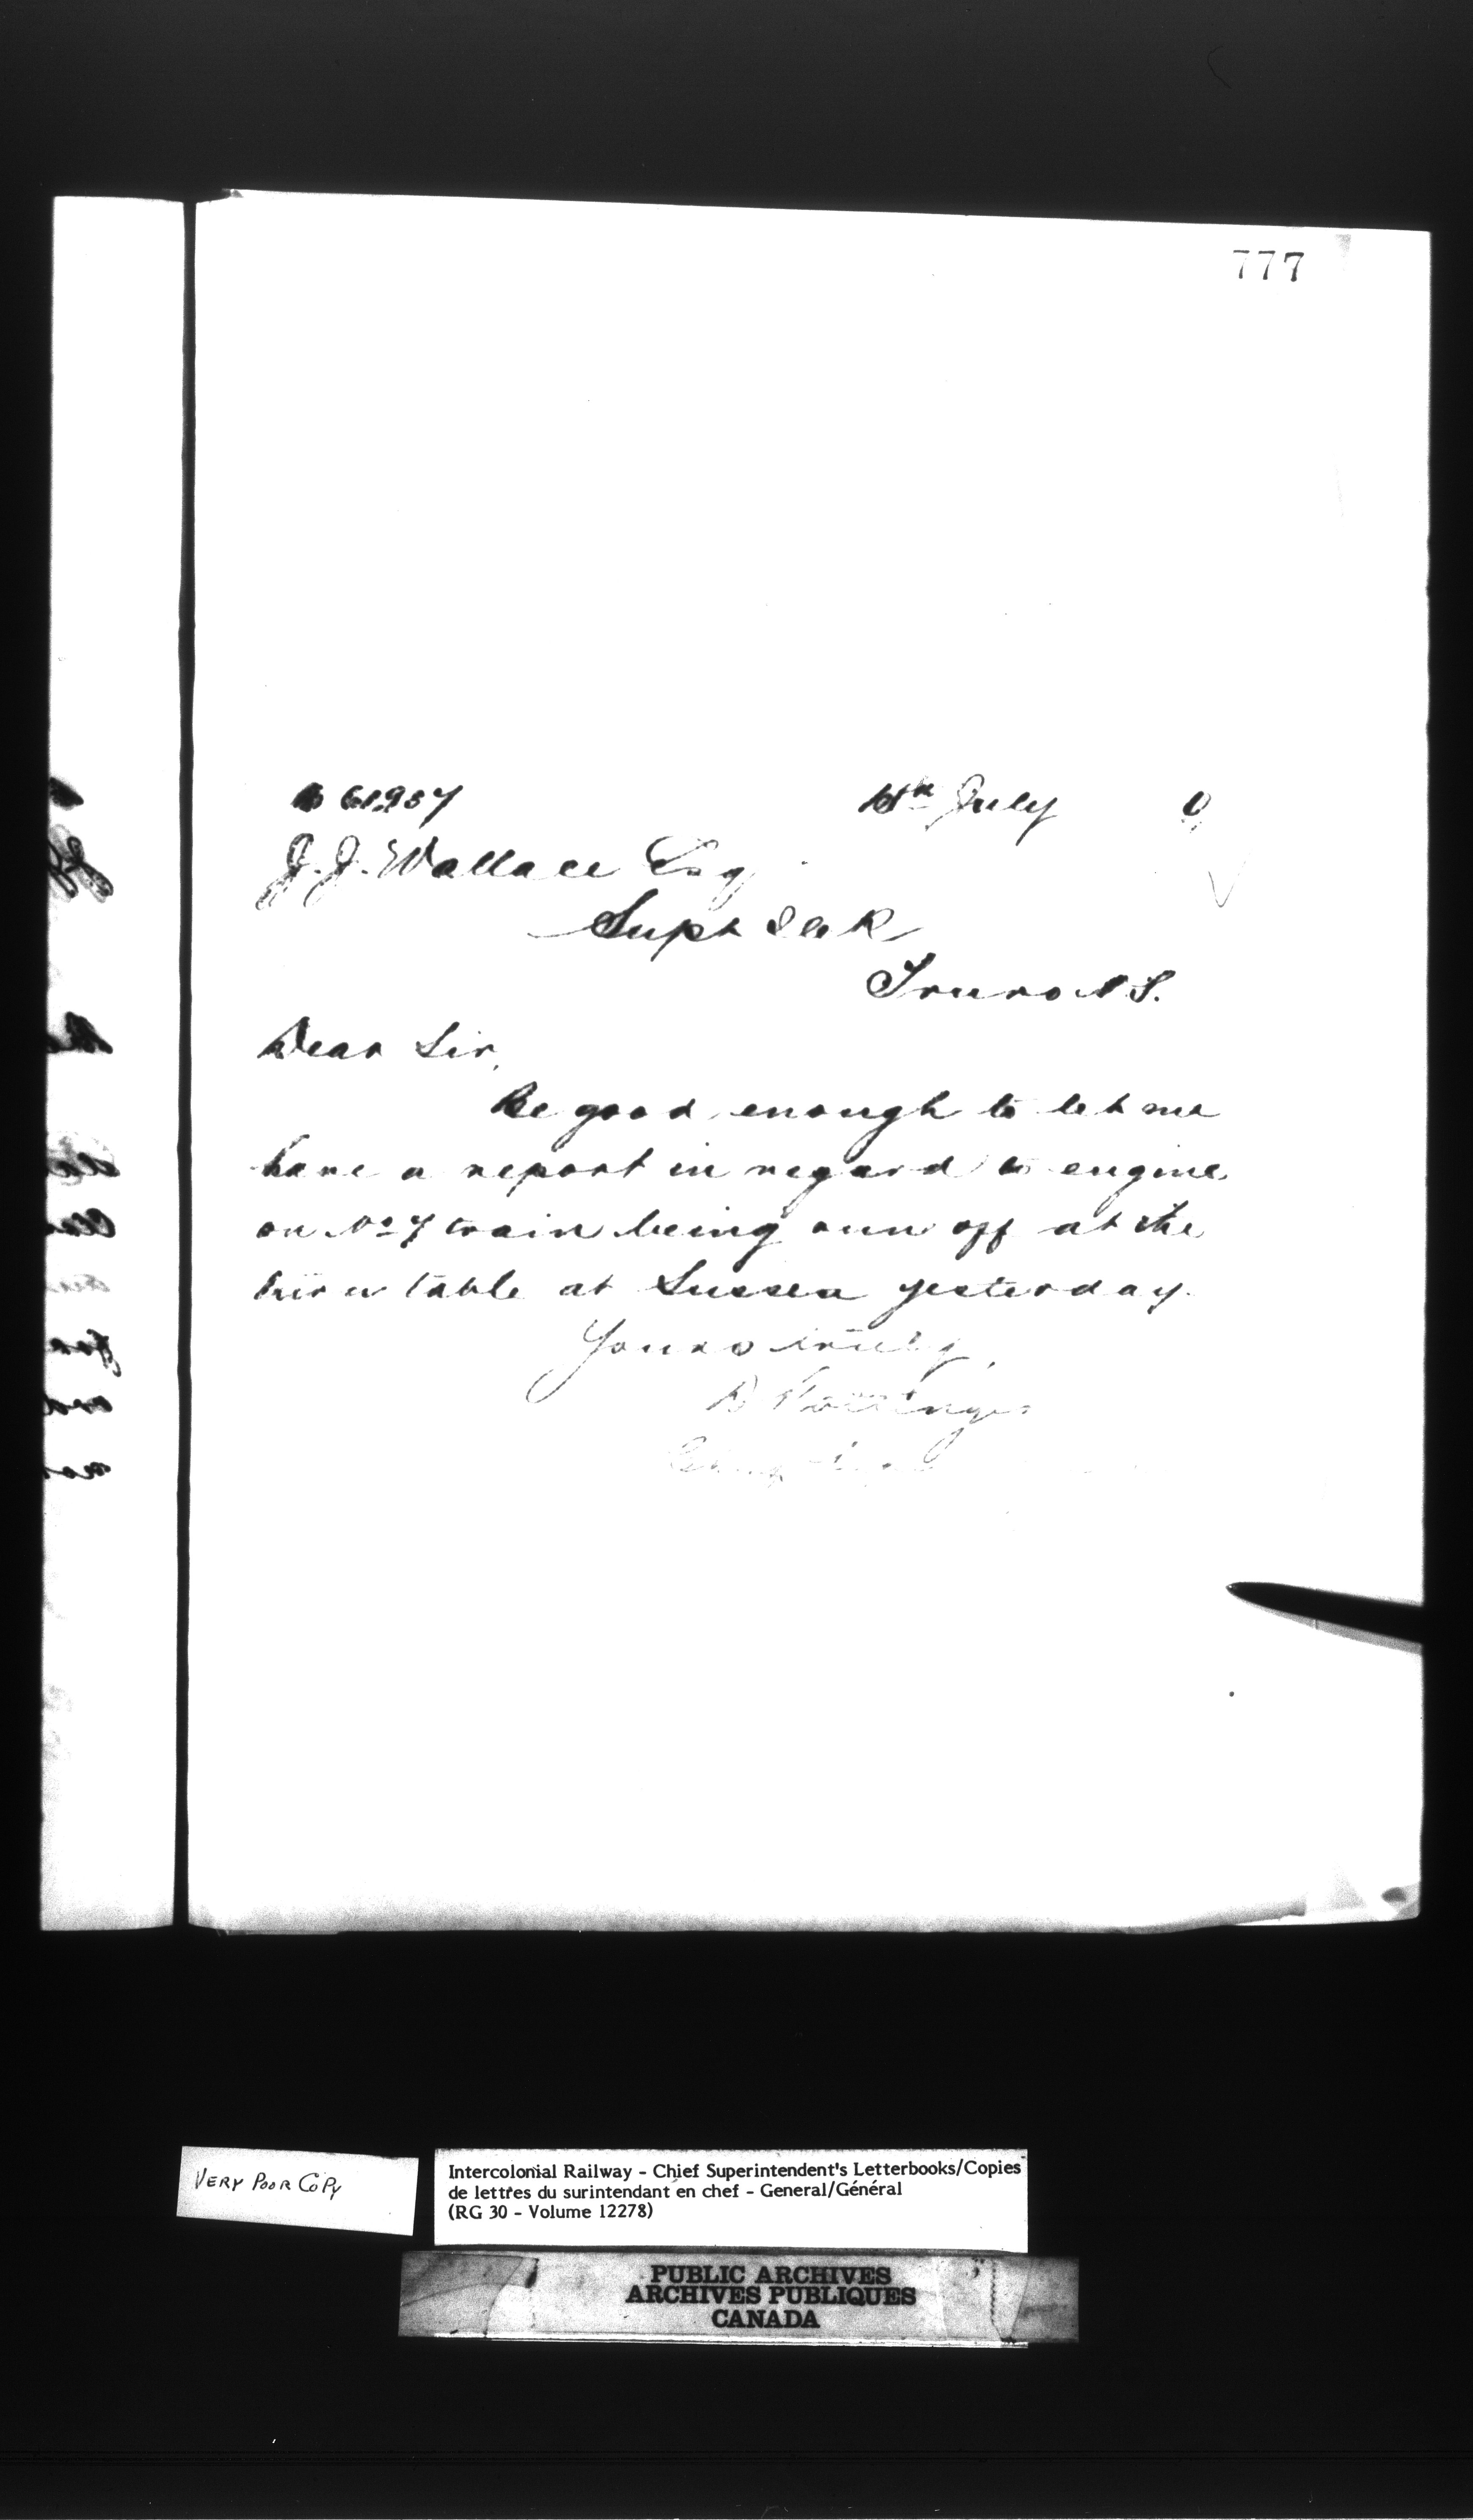 777
61937
July
J. J. Wallace Esq
Supt I C R
Truro N.S.
Dear Sir,
Be good enough to let me
have a report in regard to engine
on No 7 train being run off at the
turn table at Sussex yesterday.
Yours truly,
D Pottinger
VERY POOR COPY
Intercolonial Railway - Chief Superintendent's Letterbooks/Copies
de lettres du surintendant en chef - General/Général
(RG 30 - Volume 12278)
PUBLIC ARCHIVES
ARCHIVES PUBLIQUES
CANADA